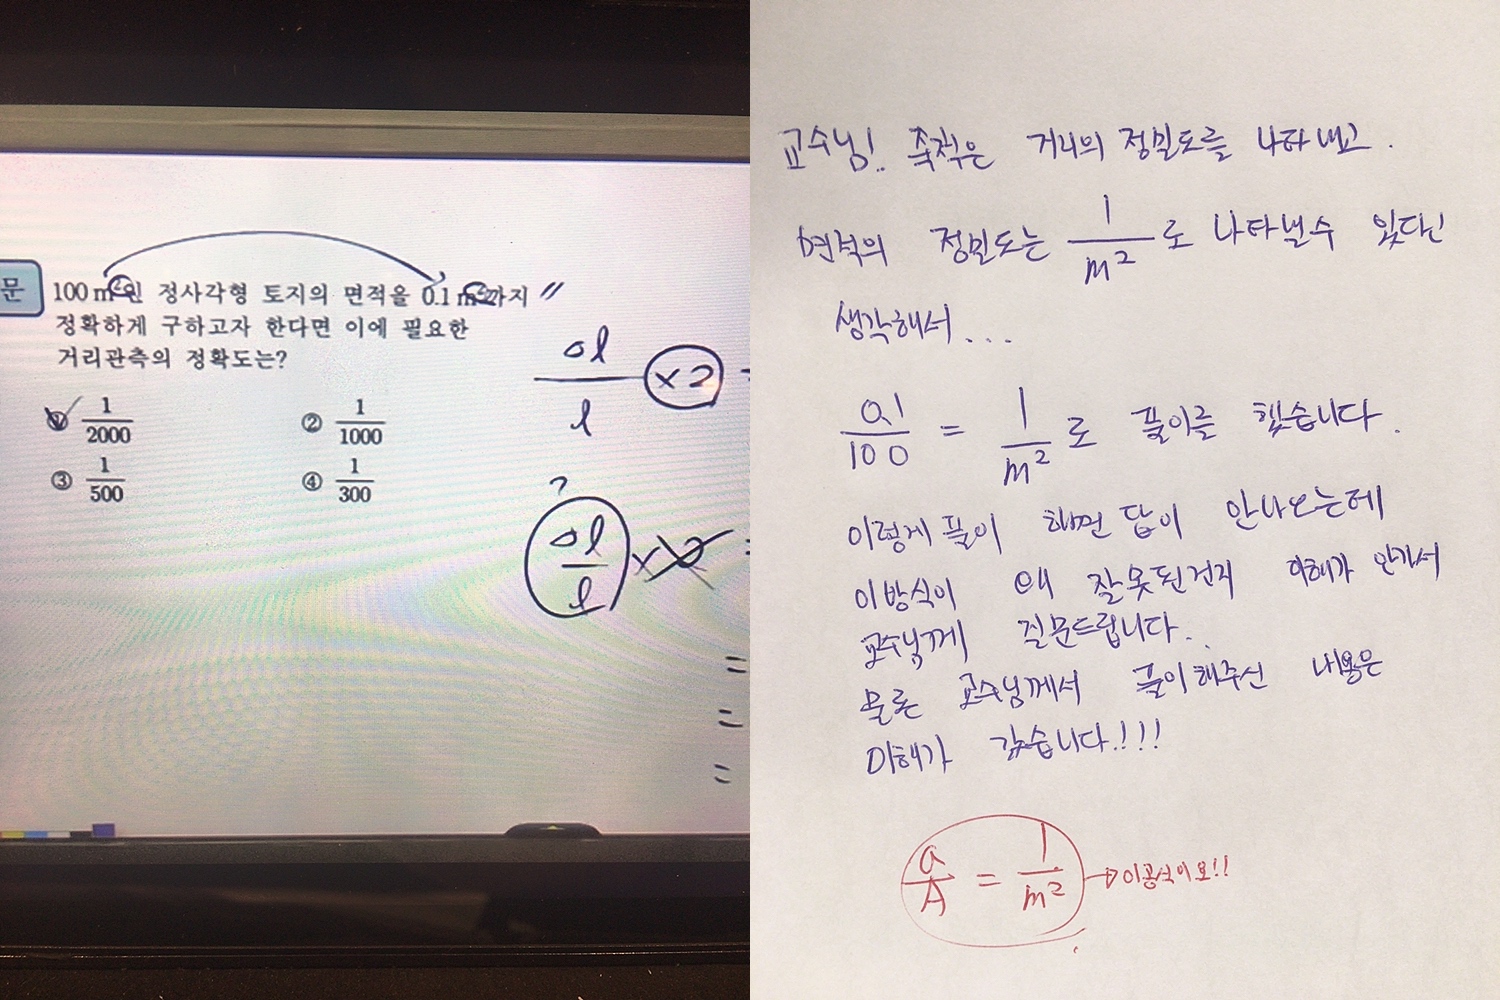 문
100 m²인 정사각형 토지의 면적을 0.1 m²까지
정확하게 구하고자 한다면 이에 필요한
거리관측의 정확도는?
① 1/2000
② 1/1000
③ 1/500
④ 1/300
Δl/l ×2 =
?
Δl/l ×2 =
=
=
=
교수님!. 축척은 거리의 정밀도를 나타내고.
면적의 정밀도는 1/m² 로 나타낼수 있다닌
생각해서...
0.1/100 = 1/m² 로 풀이를 했습니다.
이렇게 풀이 하면 답이 안나오는데
이방식이 왜 잘못된건지 이해가 안가서
교수님께 질문드립니다.
물론 교수님께서 풀이해주신 내용은
이해가 갔습니다.!!!
a/A = 1/m² → 이공식이요!!